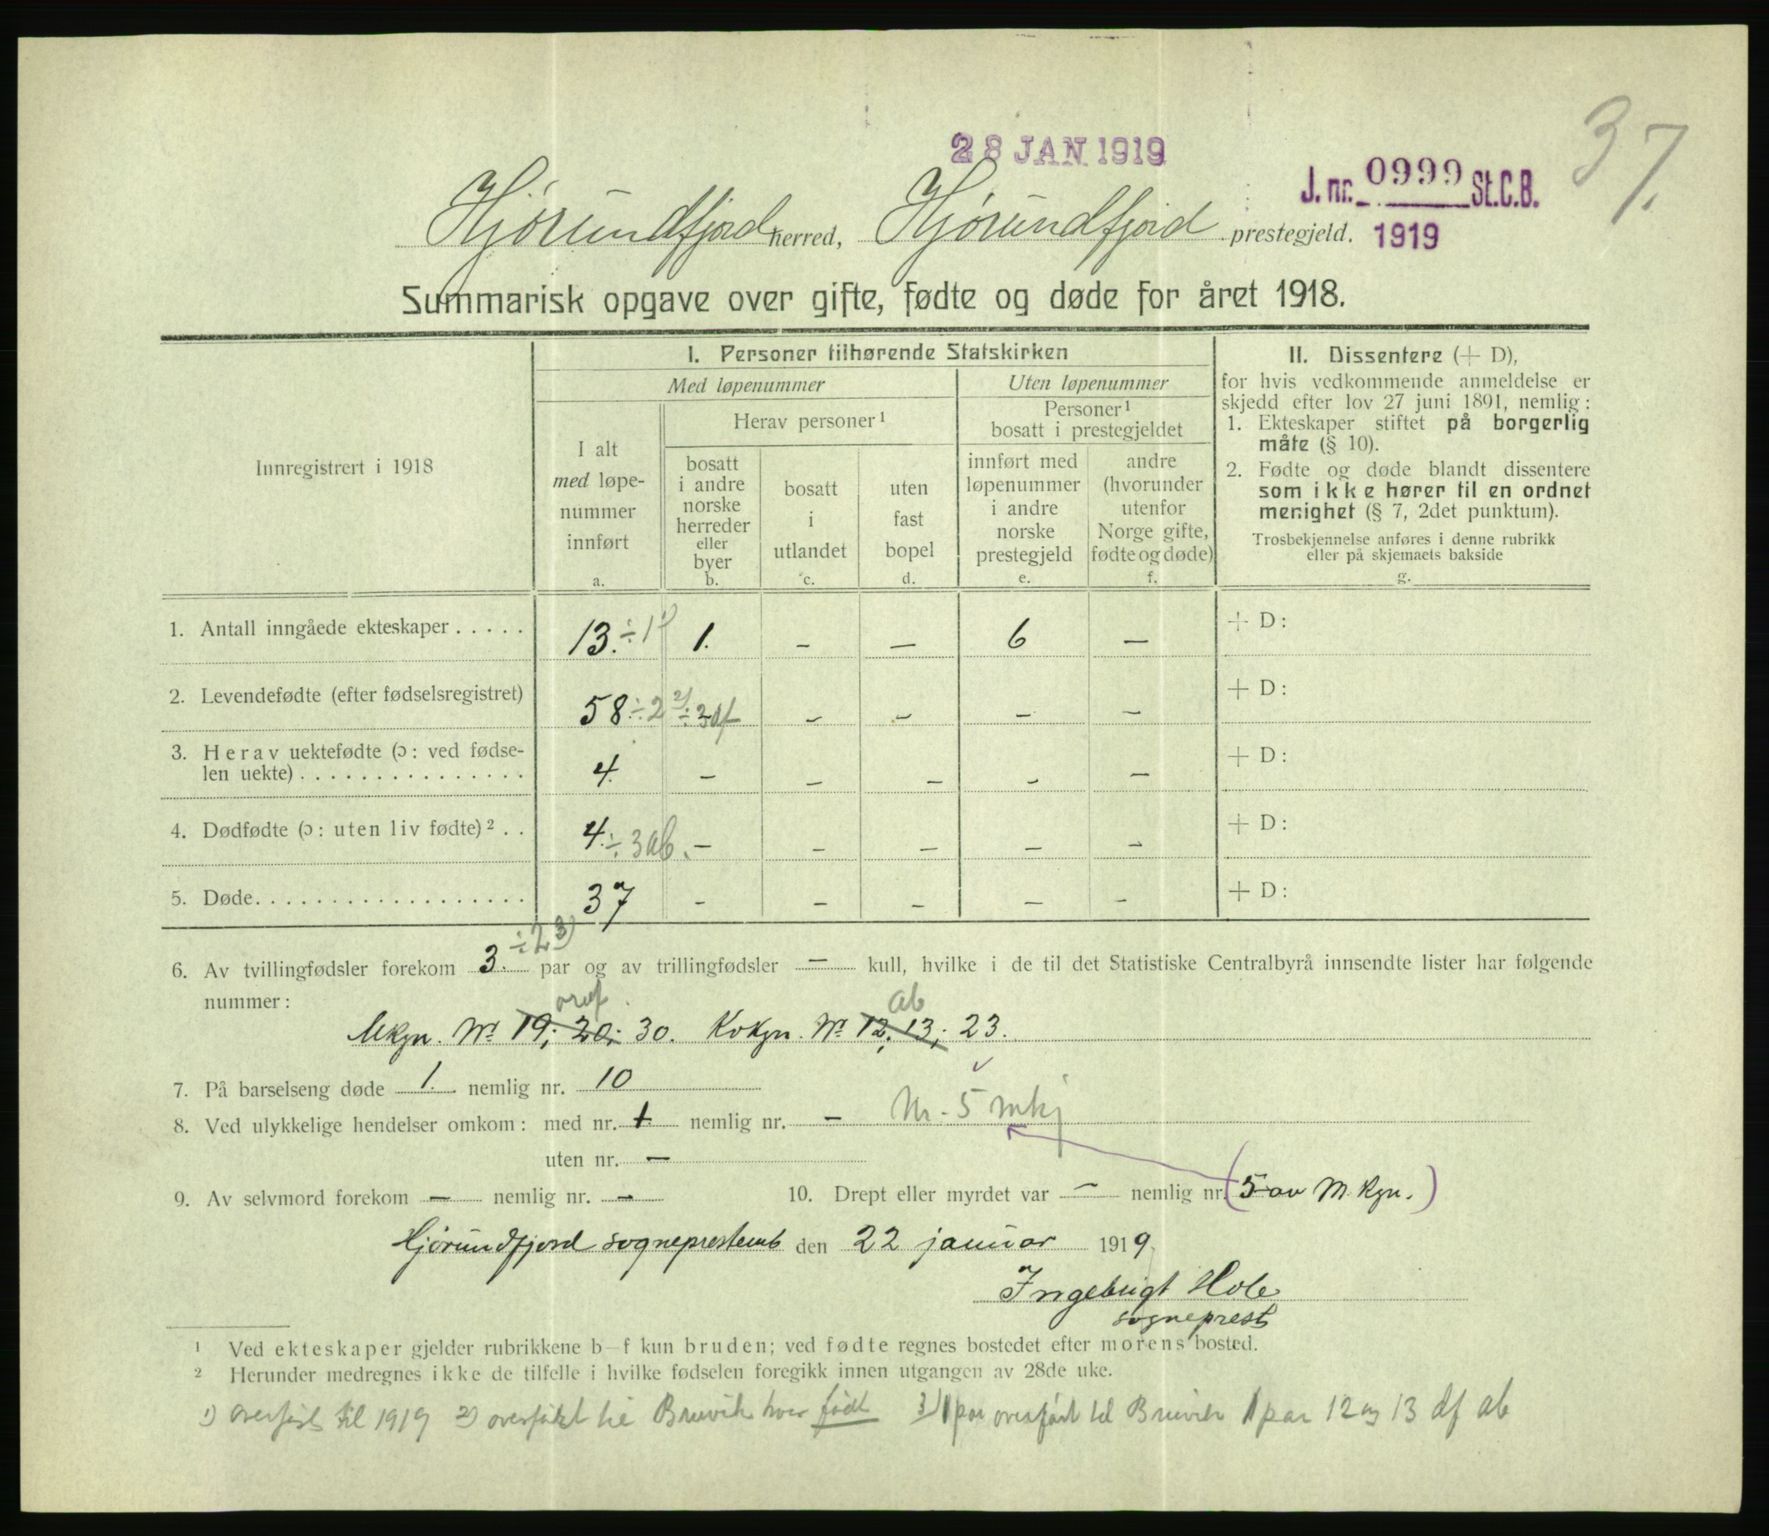 28 JAN 1919
37.
J. nr. 0999 St.C.B.
1919
Hjørundfjord herred, Hjørundfjord prestegjeld.
Summarisk opgave over gifte, fødte og døde for året 1918.
Innregistrert i 1918
I. Personer tilhørende Statskirken
Med løpenummer
Uten løpenummer
I alt
med løpe-
nummer
innført
a.
Herav personer ¹
bosatt
i andre
norske
herreder
eller
byer
b.
bosatt
i
utlandet
c.
uten
fast
bopel
d.
Personer ¹
bosatt i prestegjeldet
innført med
løpenummer
i andre
norske
prestegjeld
e.
andre
(hvorunder
utenfor
Norge gifte,
fødte og døde)
f.
II. Dissentere (+ D),
for hvis vedkommende anmeldelse er
skjedd efter lov 27 juni 1891, nemlig:
1. Ekteskaper stiftet på borgerlig
måte (§ 10).
2. Fødte og døde blandt dissentere
som ikke hører til en ordnet
menighet (§ 7, 2det punktum).
Trosbekjennelse anføres i denne rubrikk
eller på skjemaets bakside
g.
1. Antall inngåede ekteskaper..... 13. ÷1 ¹) 1. – – 6 – + D:
2. Levendefødte (efter fødselsregistret) 58 ÷2 ²) ÷ – – – – + D:
3. Herav uektefødte (ɔ: ved fødse-
len uekte)............... 4. – – – – – + D:
4. Dødfødte (ɔ: uten liv fødte) ² .. 4. ÷ 3 ab. – – – – – + D:
5. Døde.................. 37 – – – – – + D:
6. Av tvillingfødsler forekom 3. ÷2 3) par og av trillingfødsler – kull, hvilke i de til det Statistiske Centralbyrå innsendte lister har følgende
nummer:
ab
Mkjn. Nr 19; 20; 30. Kvkjn. Nr 12; 13; 23.
7. På barselseng døde 1. nemlig nr. 10
8. Ved ulykkelige hendelser omkom: med nr. 1 nemlig nr. – Nr. 5 mkj
uten nr. –
9. Av selvmord forekom – nemlig nr. – 10. Drept eller myrdet var – nemlig nr. (5 av M. kjn.)
Hjørundfjord sogneprestemb den 22 januar 1919.
Ingebrigt Hole
sogneprest
¹ Ved ekteskaper gjelder rubrikkene b–f kun bruden; ved fødte regnes bostedet efter morens bosted.
² Herunder medregnes ikke de tilfelle i hvilke fødselen foregikk innen utgangen av 28de uke.
1) overført til 1919 2) overført til Bruvik hvor født 3) 1 par overført til Bruvik 1 par 12 og 13 df ab